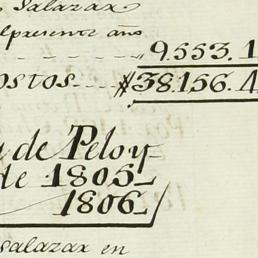 Salazar
el presente año
9.553.1
ostos $38.156.4
de Pelo y
de 1805
1806
Salazar en